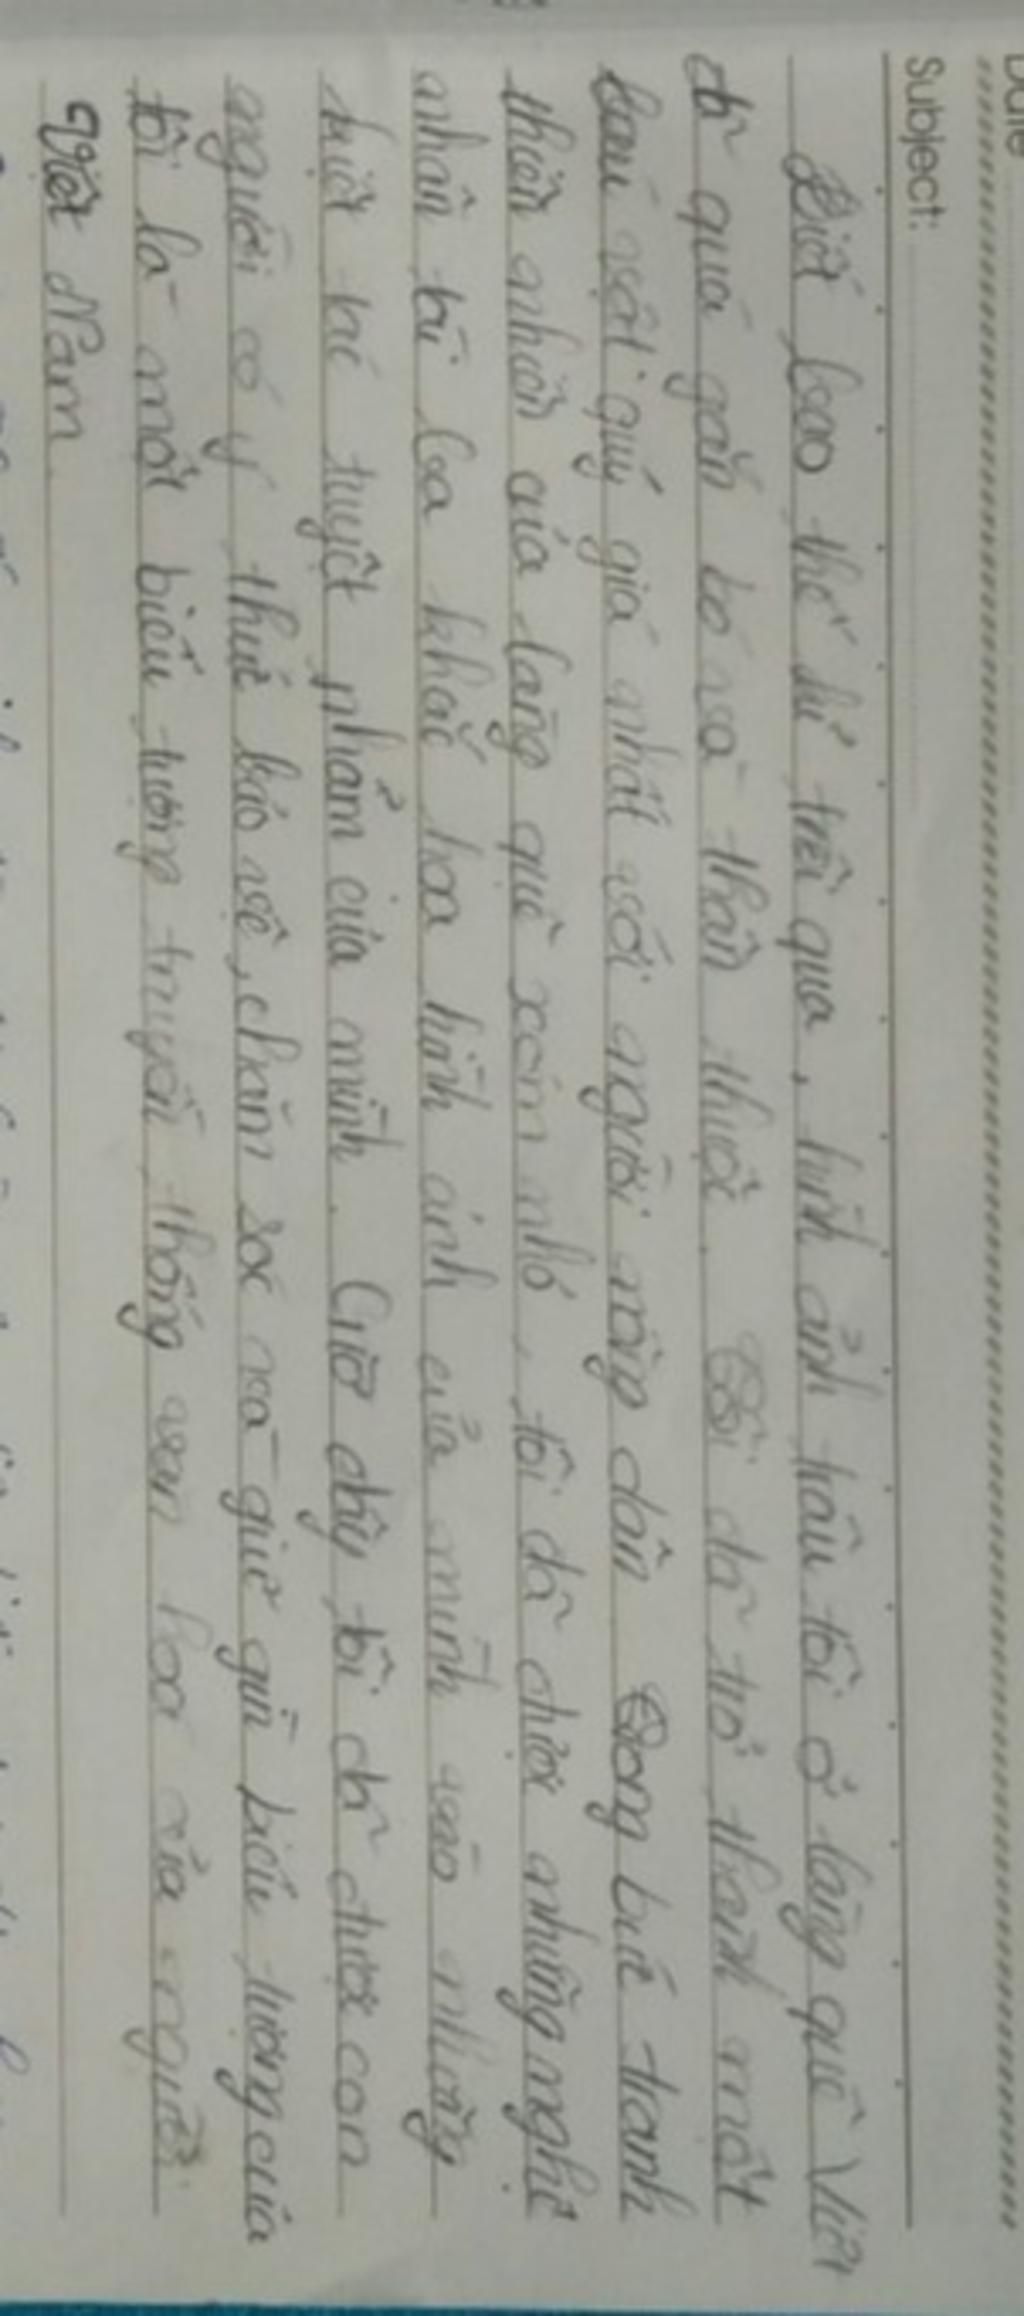 Date
Subject:
Biết bao thế hệ trôi qua, hình ảnh trâu tôi ở làng quê Việt
đã quá gắn bó và thân thuộc. Tôi đã trở thành một
báu vật quý giá nhất với người nông dân. Trong bức tranh
thiên nhiên của làng quê xóm nhỏ, tôi đã được những nghệ
nhân tài ba khắc họa hình ảnh của mình vào những
kiệt tác tuyệt phẩm của mình. Giờ đây tôi đã được con
người có ý thức bảo vệ, chăm sóc và giữ gìn biểu tượng của
tôi là một biểu tượng truyền thống văn hoá của người
Việt Nam